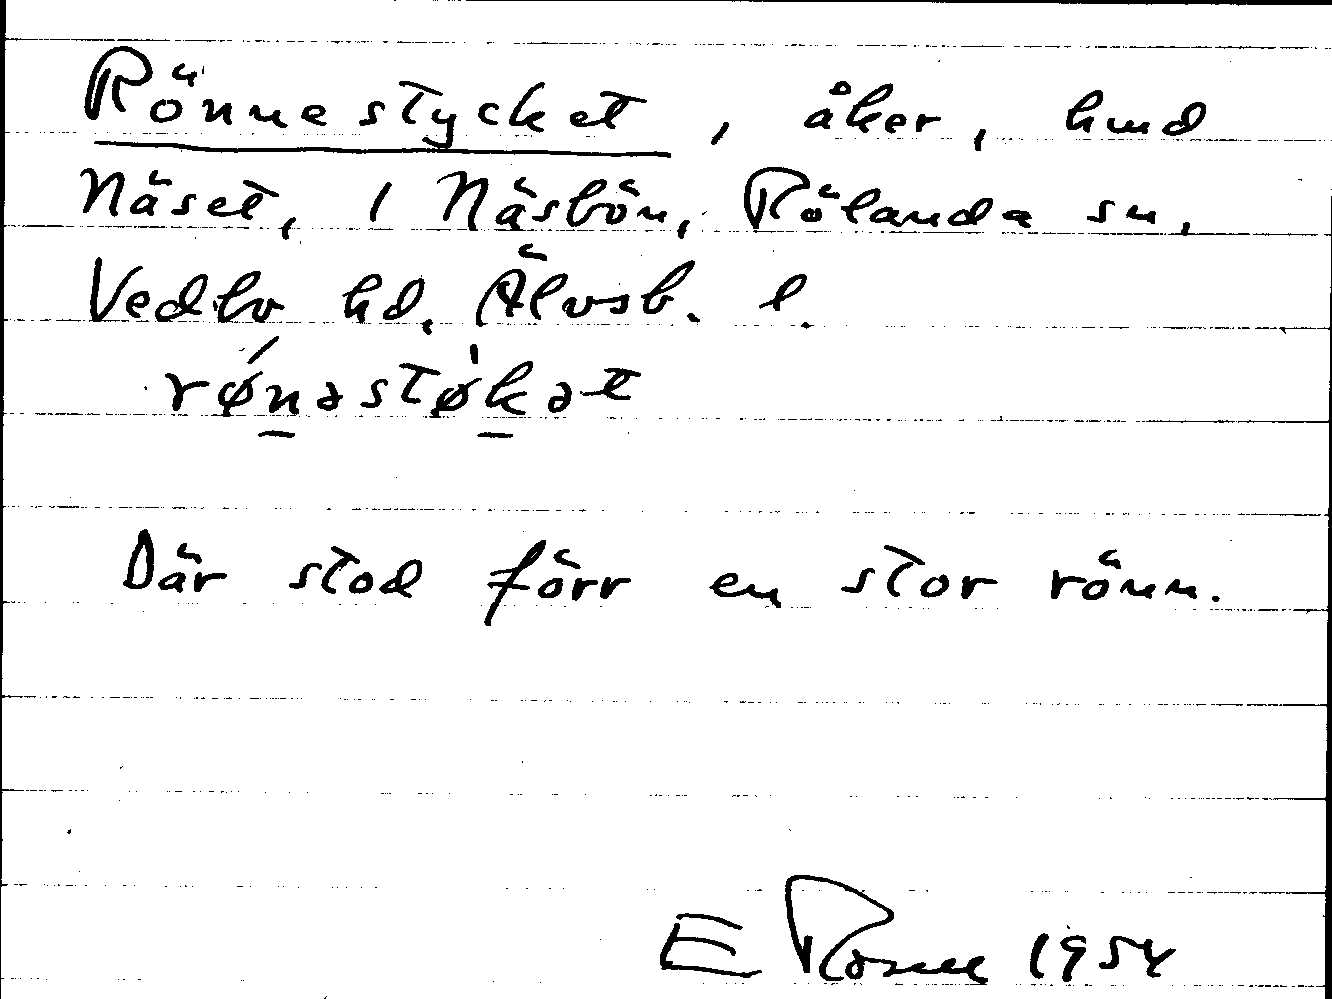 Rönnestycket, åker, hmd
Näset, 1 Näsbön, Rölanda sn,
Vedbo hd, Älvsb. l.
rǿn̲əstø̍k̲ət
Där stod förr en stor rönn.
E 1954